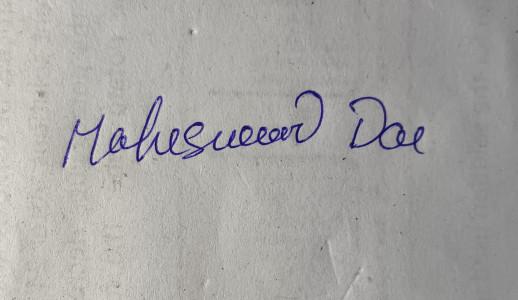 Maheswar Das